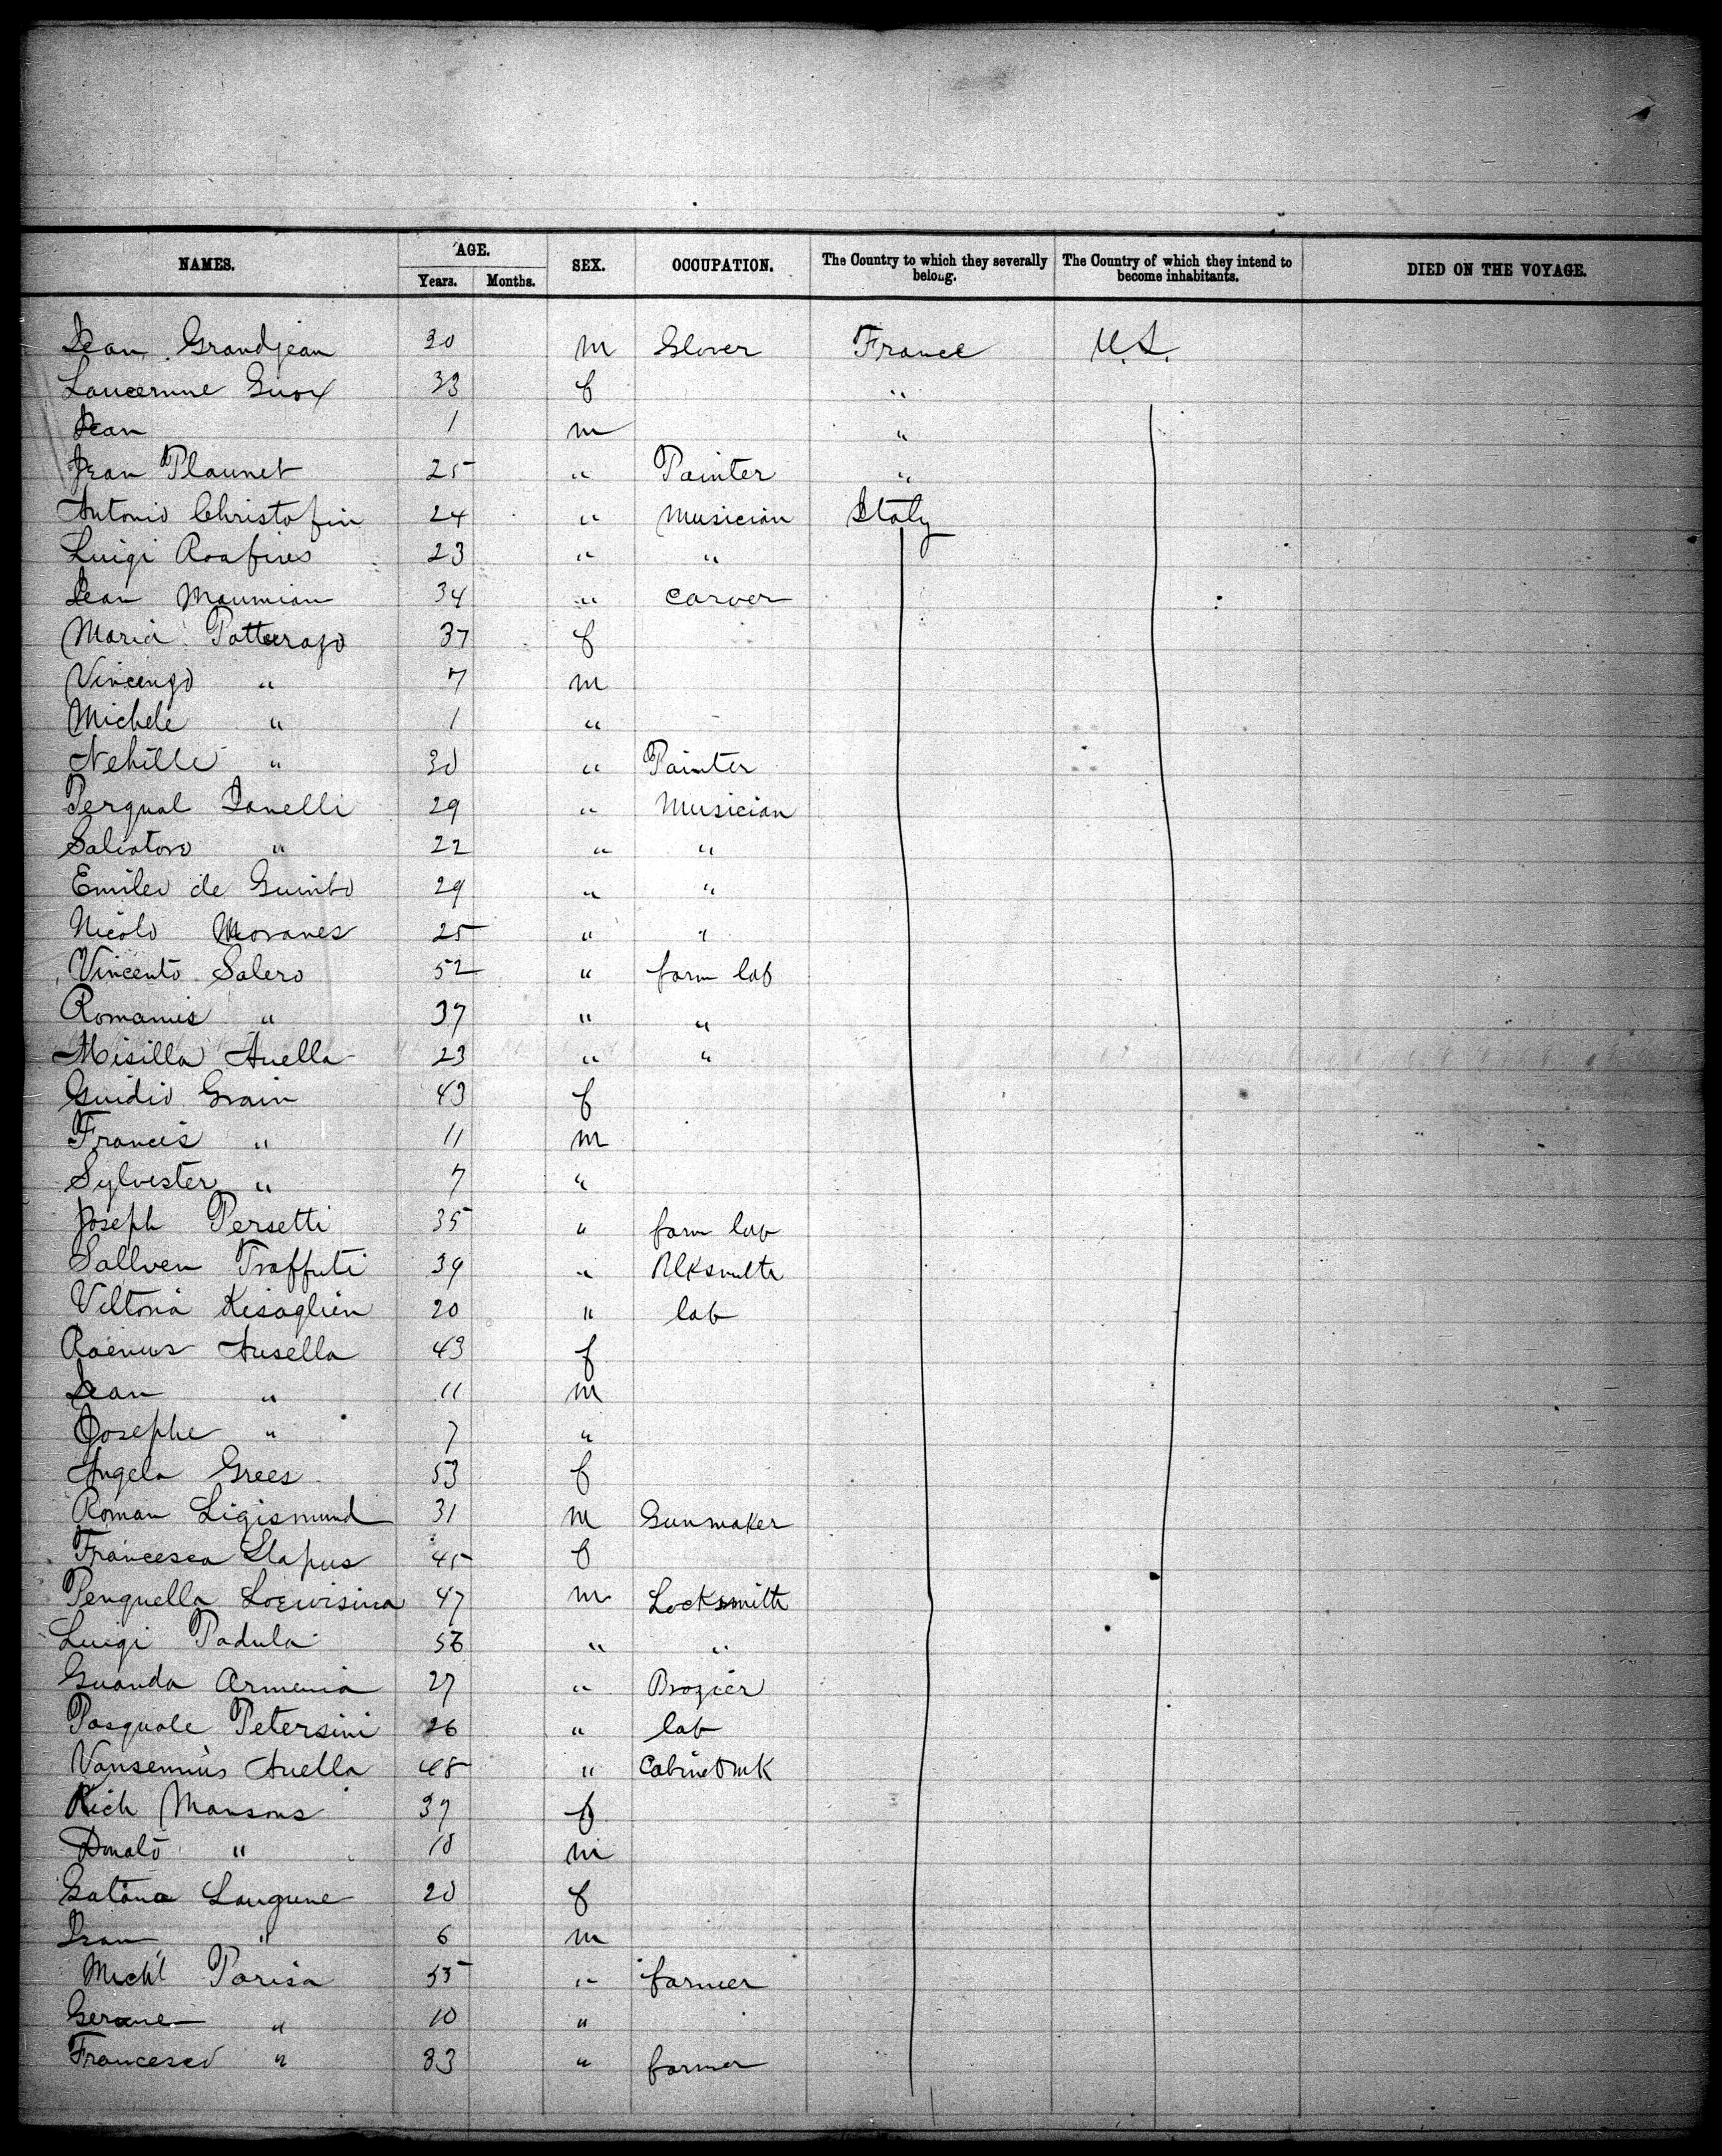 NAMES. AGE. Years. Months. SEX. OCCUPATION. The Country to which they severally belong. The Country of which they intend to become inhabitants. DIED ON THE VOYAGE.
Jean Grandjean 30 m Glover France U.S.
33 f "
Jean 1 m "
Jean Plaunet 25 " Painter "
Antonio Christofin 24 " Musician Italy
Luigi Roafires 23 " "
Jean Maumian 34 " Carver
Maria 37 f
Vincenzo " 7 m
Michele " 1 "
" 30 " Painter
Perqual Janelli 29 " Musician
Salvatore " 22 " "
Emileo de Guinto 29 " "
Nicolo Moranes 25 " "
Vincento Salero 52 " farm lab
Romanus " 37 " "
Misilla Auella 23 " "
Guidio Grain 43 f
Francis " 11 m
Sylvester " 7 "
Joseph Persetti 35 " farm lab
Sallven Traffuti 39 " Blksmith
Viltoria Kisaglien 20 " lab
Ausella 43 f
Jean " 11 m
Josephe " 7 "
Angela Grees 53 f
Roman Sigismund 31 m Gunmaker
Francesca Slapus 45 f
Penquella 47 m Locksmith
Luigi Padula 56 " "
Guanda Armenia 27 " Brazier
Pasquale Petersini 26 " lab
Auella 48 " Cabinetmk
Rich Mansons 37 f
Donato " 10 m
Gatana Langune 20 f
Jean " 6 m
Michl Parisa 55 " farmer
" 10 "
Francesco " 33 " farmer